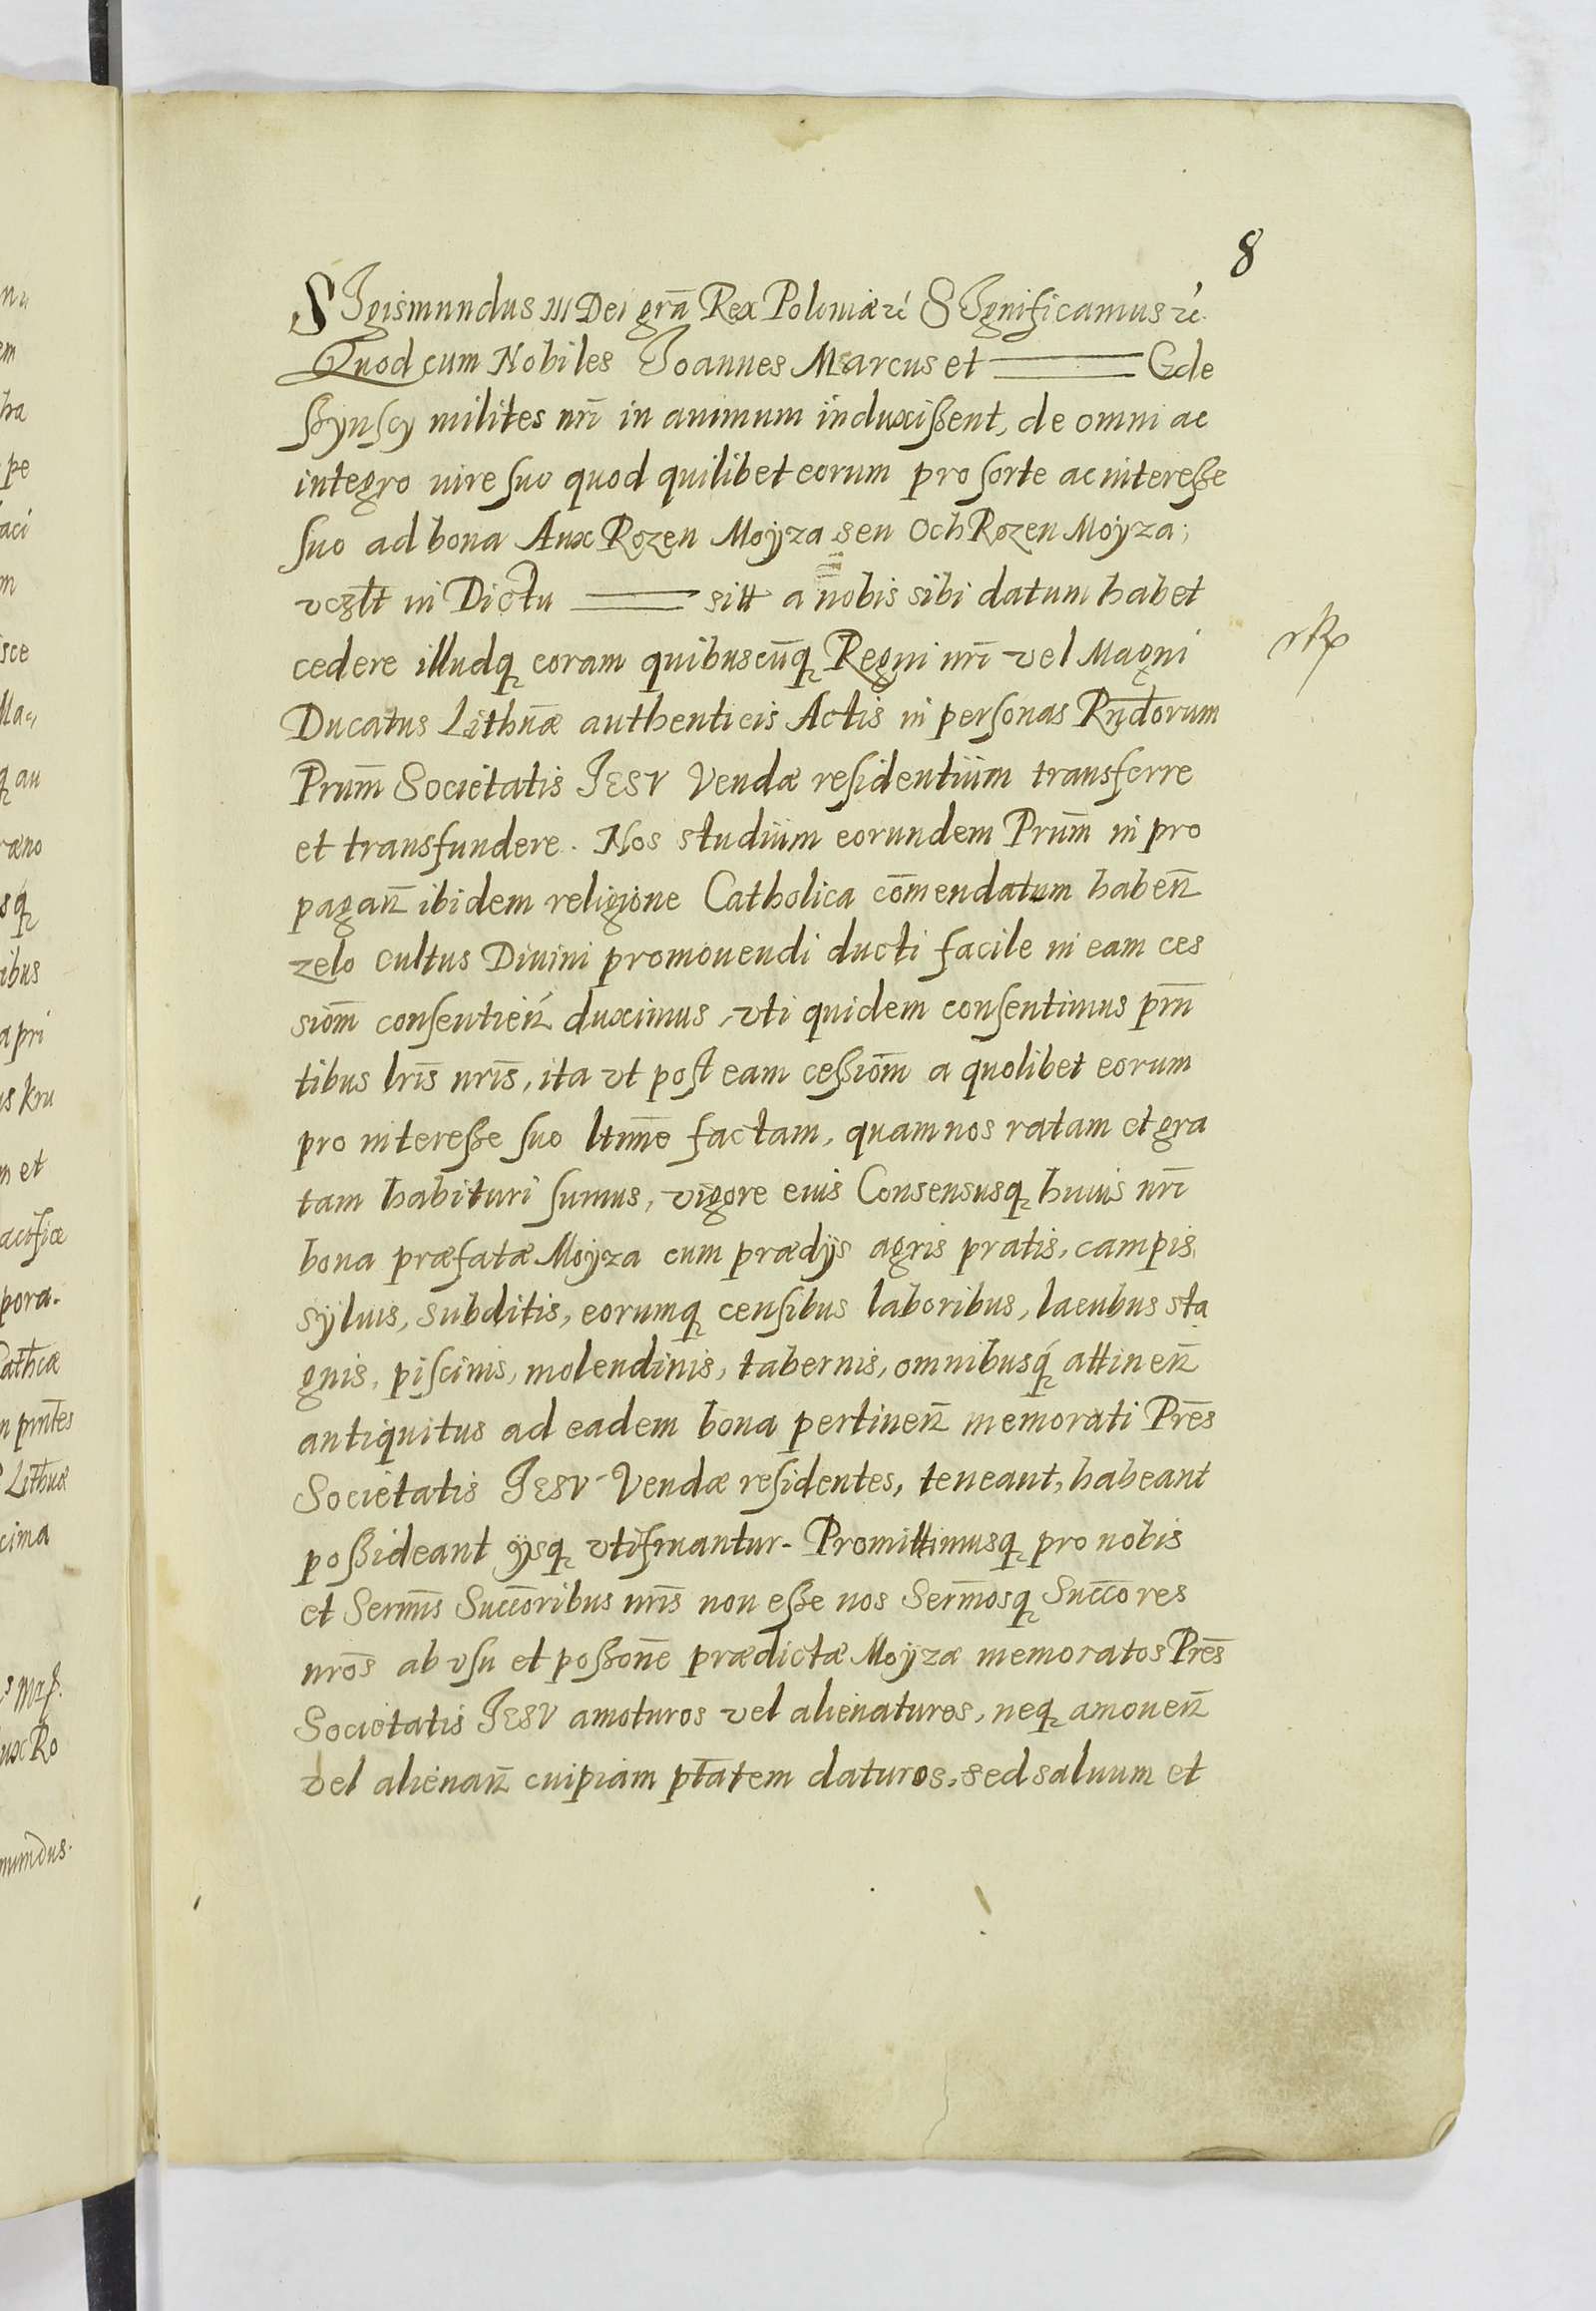 8
SIgismundus III Dei grã Rex Poloniæ rc̃ SIgnificamus rc̃.
Quod cum Nobiles Joannes Marcus et Gde
ßynscy milites nrĩ in animum induxißent, de omni ac
integro iure suo quod quilibet eorum pro sorte ac intereße
suo ad bona Aux Rozen Moyza seu Och Rozen Moyza;
in Dictu sitt a nobis sibi datum habet
cedere illudq coram quibuscũq Regni nrĩ vel Magni
Ducatus Lithũæ authenticis Actis in personas Rndorum
Prum̃ Societatis JESV Vendæ residentium transferre
et transfundere. Nos studium eorundem Prum̃ in pro
pagañ ibidem religione Catholica cõmendatum habeñ
zelo cultus Diuini promouendi ducti facile in eam ces
siom̃ consentieñ duximus, vti quidem consentimus prñ
tibus lrĩs nrĩs, ita vt post eam ceßiom̃ a quolibet eorum
pro intereße suo ltmẽ factam, quam nos ratam et gra
tam habituri sumus, vigore eius Consensusq huius nrĩ
bona præfatæ Moyza cum prædijs agris pratis, campis,
syluis, subditis, eorumq censibus laboribus, lacubus sta
gnis, piscinis, molendinis, tabernis, omnibusq́ attineñ
antiquitus ad eadem bona pertineñ memorati Prẽs
Societatis JESV Vendæ residentes, teneant, habeant
poßideant ijsq vtifruantur. Promittimusq pro nobis
et Sermĩs Succ̃oribus nrĩs non eße nos Serm̃osq Succ̃ores
nrõs ab vsu et poßonẽ prædictæ Moyzæ memoratos Prẽs
Societatis JESV amoturos vel alienaturos, neq amoueñ
vel alienañ cuipiam ptãtem daturos, sed saluum et